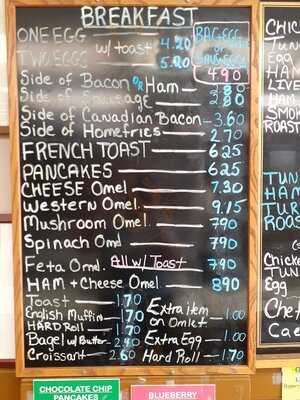 BREAKFAST
ONE EGG w/ toast 4.20
TWO EGGS 5.20
BAC+EGG
OR
SAUS+EGG
4.90
Side of Bacon OR Ham 3.80
Side of Sausage 2.80
Side of Canadian Bacon 3.60
Side of Homefries 2.70
FRENCH TOAST 6.25
PANCAKES 6.25
CHEESE Omel 7.30
Western Omel. 9.15
Mushroom Omel. 7.90
Spinach Omel 7.90
Feta Omel. All w/ Toast 7.90
HAM + Cheese Omel 8.90
Toast 1.70
English Muffin 1.70
HARD Roll 1.70
Bagel w/ Butter 2.40
Croissant 2.60
Extra item
on Omlet 1.00
Extra Egg 1.00
Hard Roll 1.70
CHOCOLATE CHIP
PANCAKES
BLUEBERRY
CHIC
TUN
Egg
HAM
LIVE
HAM
SMOK
ROAST
TUN
HAM
TUR
ROAS
Chicke
Tun
Egg
Chef
Cae